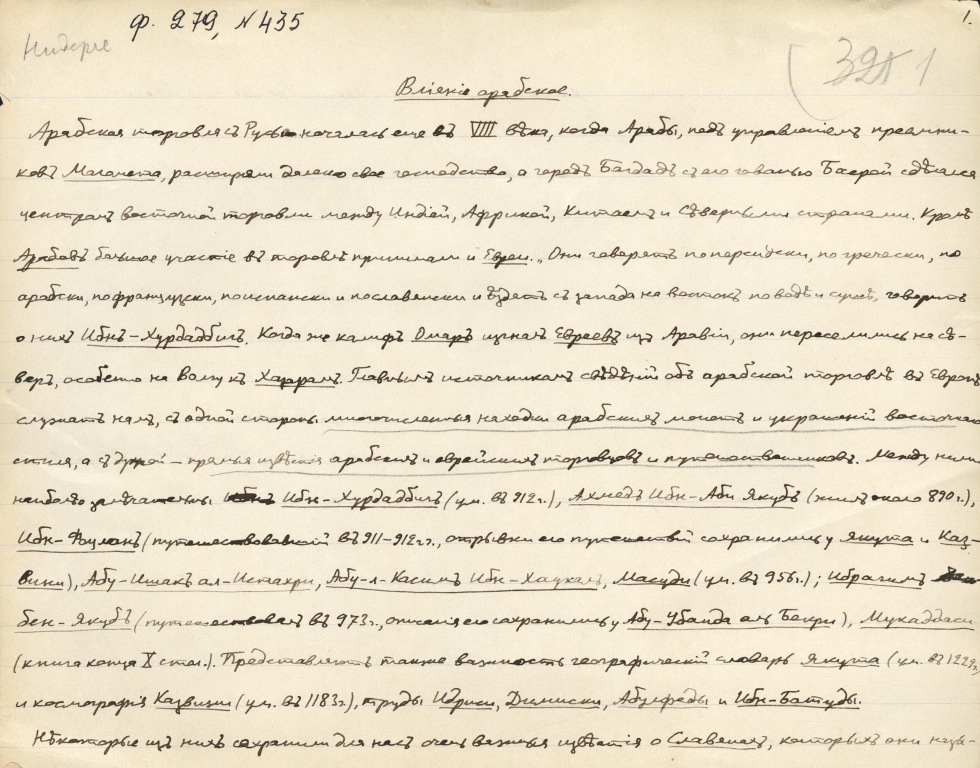 ф. 279, N 435
1.
Нидерле
321 1
Вліяніе арабское.
Арабская торговля съ Русью началась еще въ VIII вѣка, когда Арабы, подъ управленіемъ преемни-
ковъ Магомета, расширяли далеко свое господство, а городъ Багдадъ съ его гаванью Басрой сдѣлался
центромъ восточной торговли между Индіей, Африкой, Китаемъ и Сѣверными странами. Кромѣ
Арабовъ большое участіе въ торговлѣ принимали и Евреи. „Они говорятъ по персидски, по гречески, по
арабски, по французски, по испански и по славянски и ѣздятъ съ запада на востокъ по водѣ и сушѣ, говоритъ
о нихъ Ибнъ-Хурдадбигъ. Когда же калифъ Омаръ изгналъ Евреевъ изъ Аравіи, они переселились на сѣ-
веръ, особенно на Волгу къ Хазарамъ. Главнымъ источникомъ свѣдѣній объ арабской торговлѣ въ Европѣ
служатъ намъ, съ одной стороны многочисленныя находки арабскихъ монетъ и украшеній восточнаго
стиля, а съ другой – прямыя извѣстія арабскихъ и еврейскихъ торговцовъ и путешественниковъ. Между ними
наиболѣе замѣчательны Ибн-Хурдадбигъ (ум. въ 912 г.), Ахмедъ Ибн-Аби Якубъ (жилъ около 890 г.),
Ибн-Фоцланъ (путешествовавшій въ 911-912 г.г., отрывки его путешествій сохранились у Якута и Каз-
вини), Абу-Исхакъ ал-Истахри, Абу-л-Касимъ Ибн-Хаукалъ, Масуди (ум. въ 956 г.); Ибрагимъ
бен-Якубъ (путешествовалъ въ 973 г., описанія его сохранились у Абу-Убаида алъ Бекри), Мукаддаси
(книга конца X стол.). Представляютъ также важность географическій словарь Якута (ум. въ 1229 г.)
и космографія Казвини (ум. въ 1183 г.), труды Идриси, Димиски, Абулфеды и Ибн-Батуды.
Нѣкоторые изъ нихъ сохранили для насъ очень важныя извѣстія о Славянахъ, которыхъ они назы-